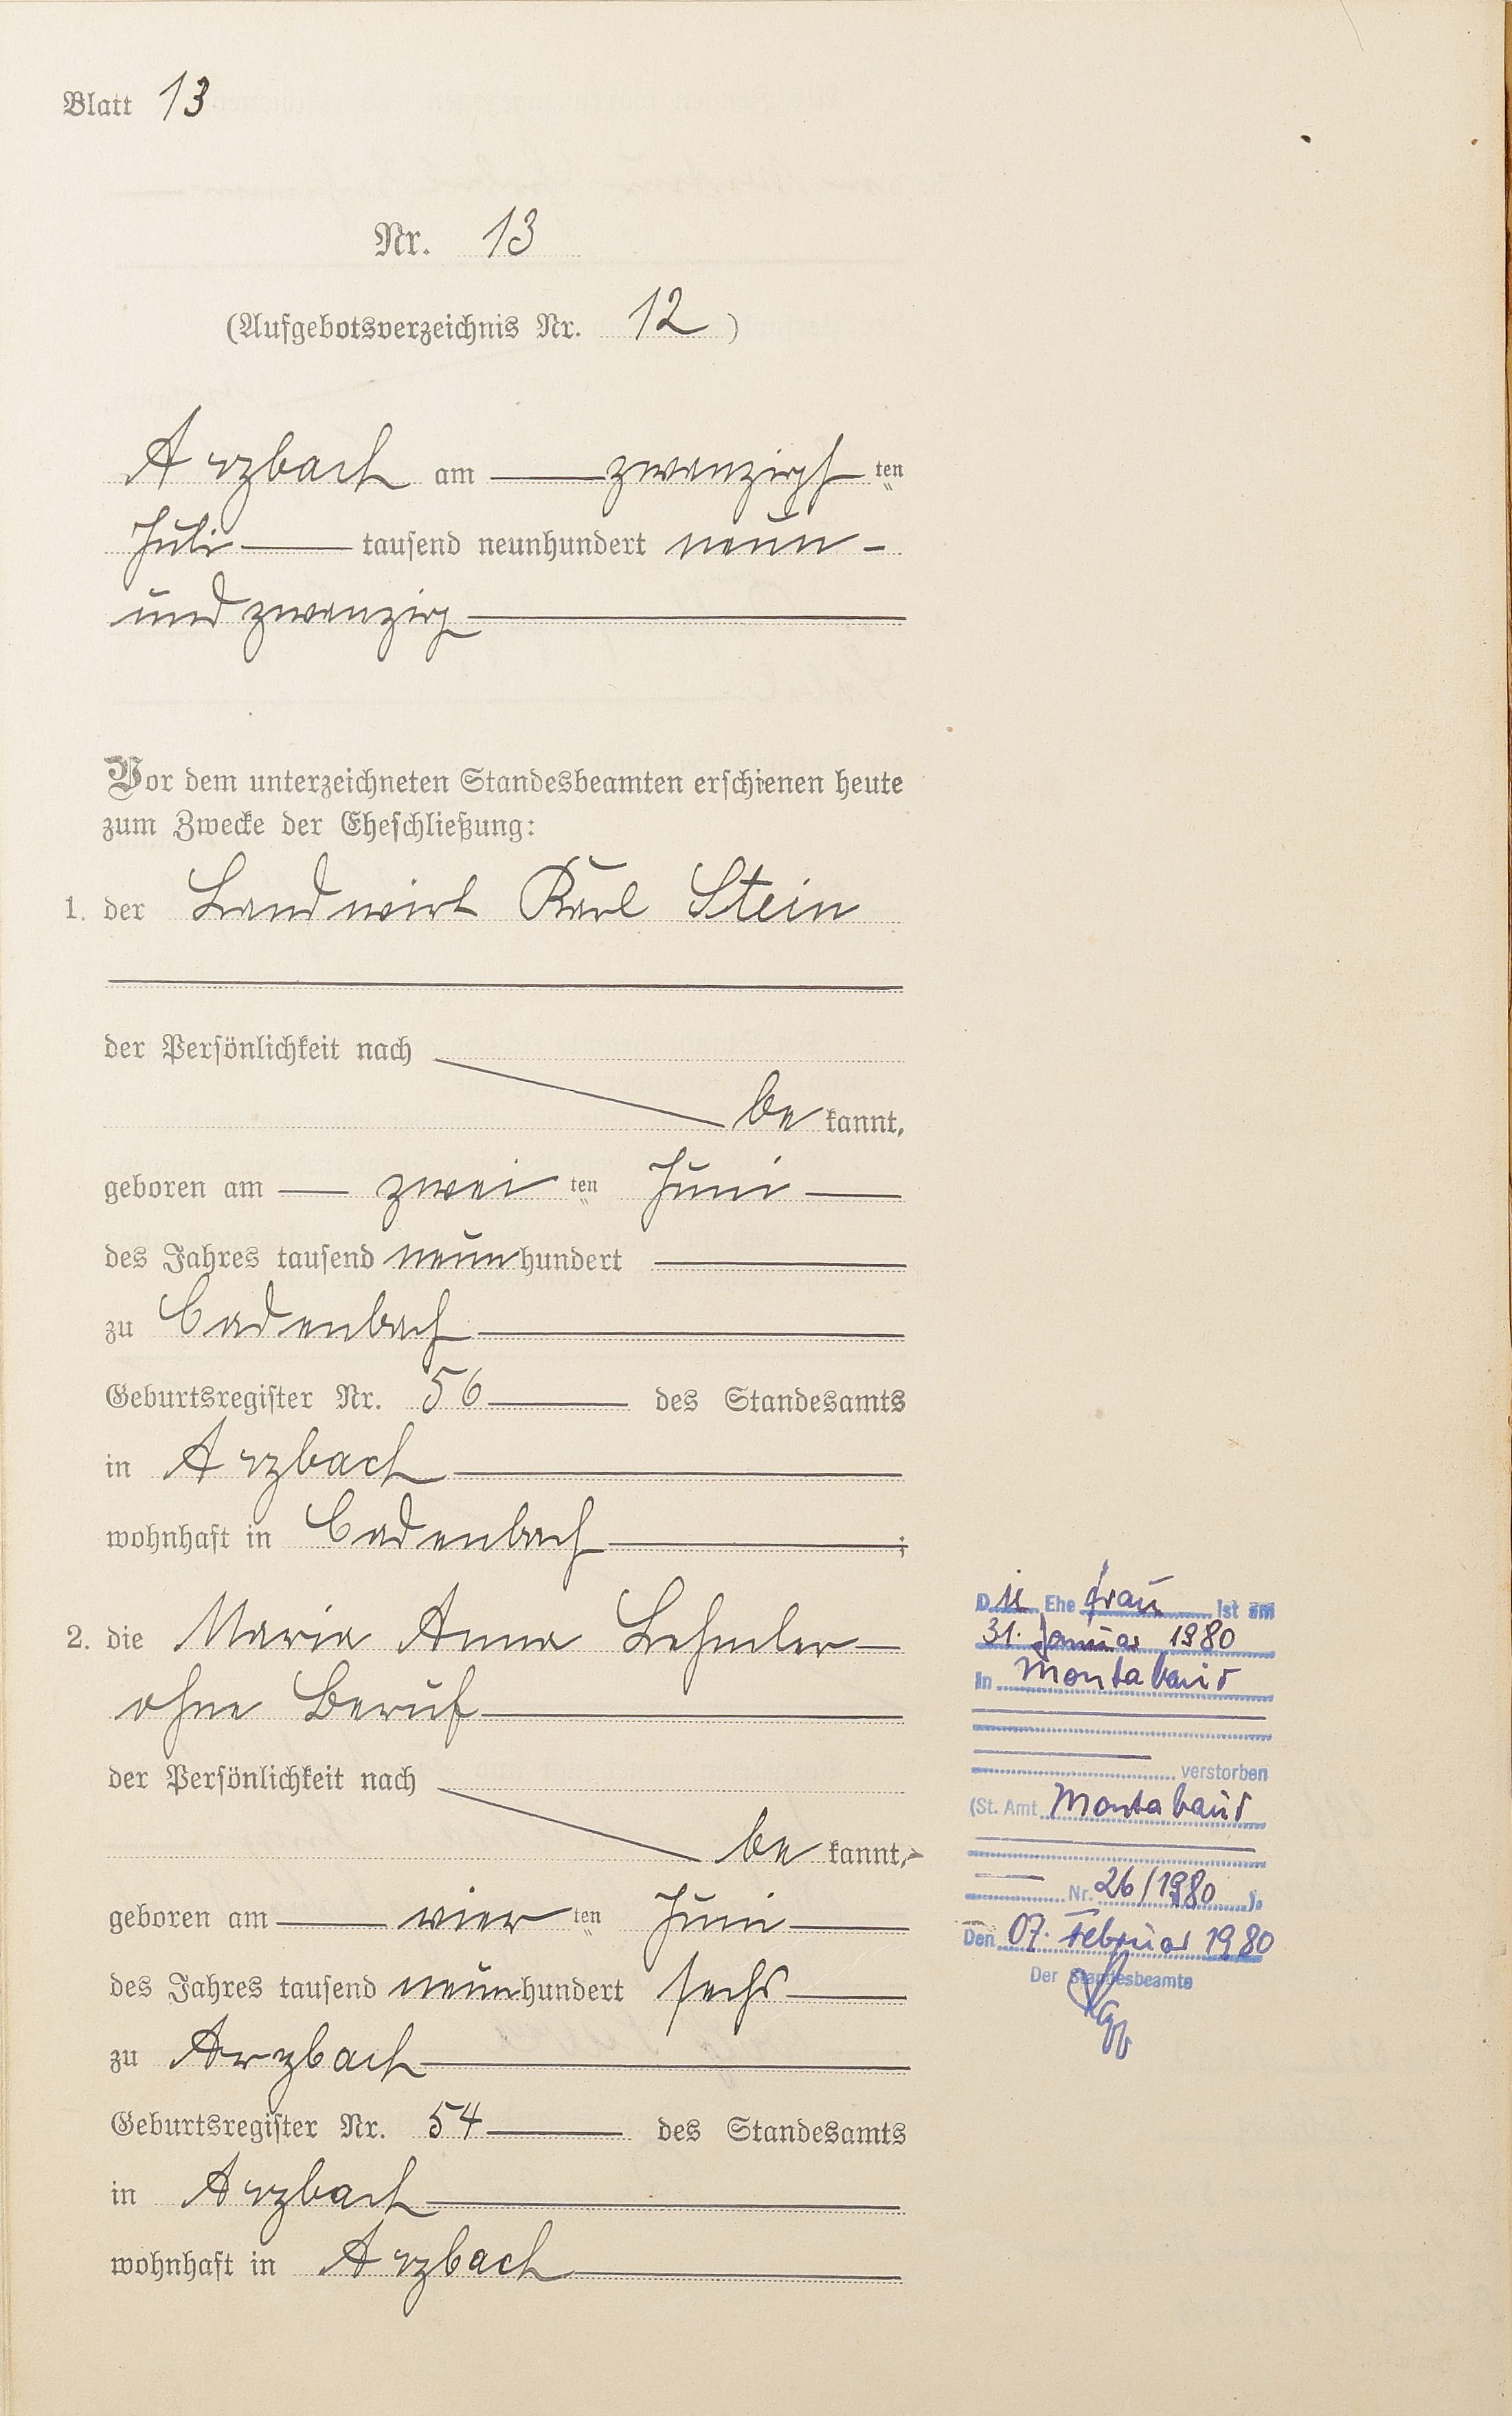 Blatt 13
Nr. 13
(Aufgebotsverzeichnis Nr. 12)
Arzbach am zwanzigsten
Juli tausend neunhundert neun-
und zwanzig
Vor dem unterzeichneten Standesbeamten erschienen heute
zum Zwecke der Eheschließung:
1. der Landwirt Karl Stein
der Persönlichkeit nach
bekannt,
geboren am zweiten Juni
des Jahres tausend neunhundert
zu Cadenbach
Geburtsregister Nr. 56 des Standesamts
in Arzbach
wohnhaft in Cadenbach;
2. die Maria Anna Lehmler
ohne Beruf
der Persönlichkeit nach
bekannt,
geboren am vierten Juni
des Jahres tausend neunhundert sechs
zu Arzbach
Geburtsregister Nr. 54 des Standesamts
in Arzbach
wohnhaft in Arzbach
Die Ehefrau ist am
31. Januar 1980
in Montabaur
verstorben
(St. Amt Montabaur
Nr. 26/1980).
Den 07. Februar 1980
Der Standesbeamte